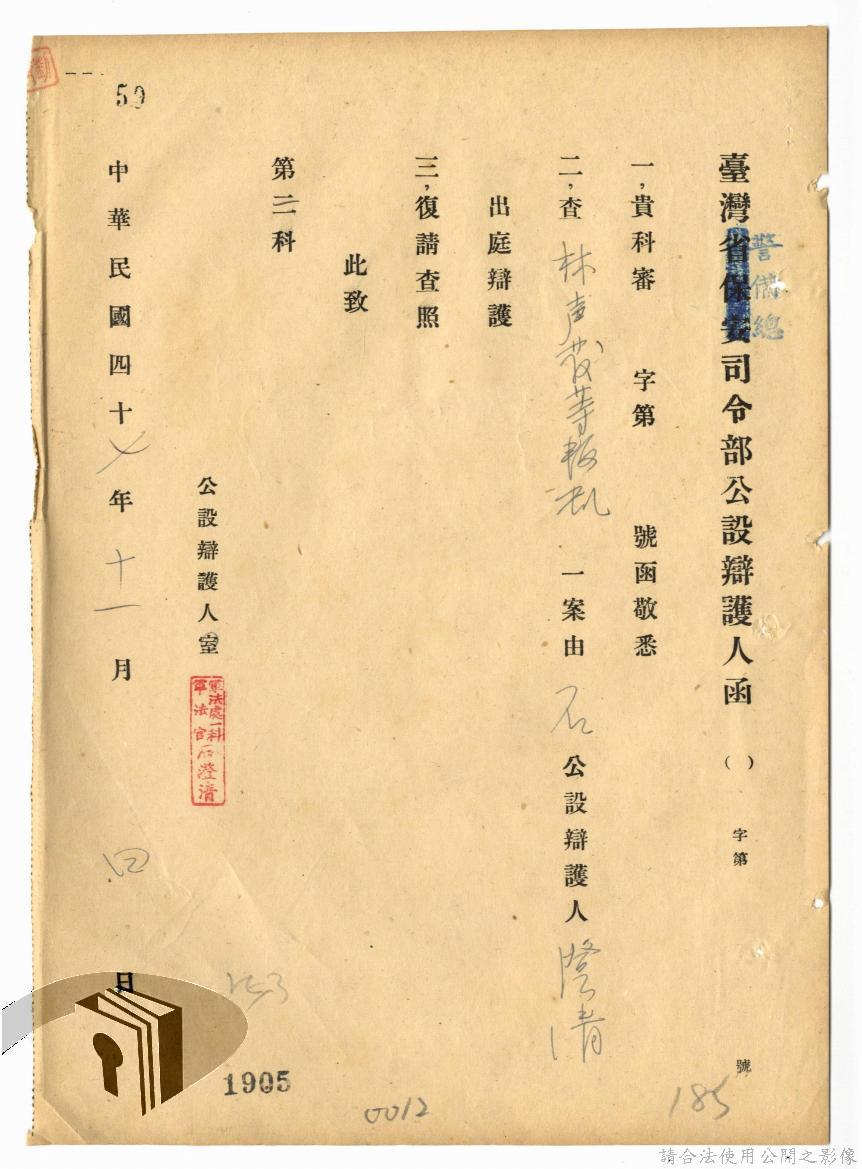 臺灣省保安司令部公設辯護人函（　）字第　號
警備總
一，貴科審　字第　號函敬悉
二，查林声發等叛乱一案由石公設辯護人澄清
出庭辯護
三，復請查照
此致
第二科
公設辯護人室
軍法處一科
軍法官石澄清
中華民國四十七年十一月四日
50
1905
0012
185
請合法使用公開之影像